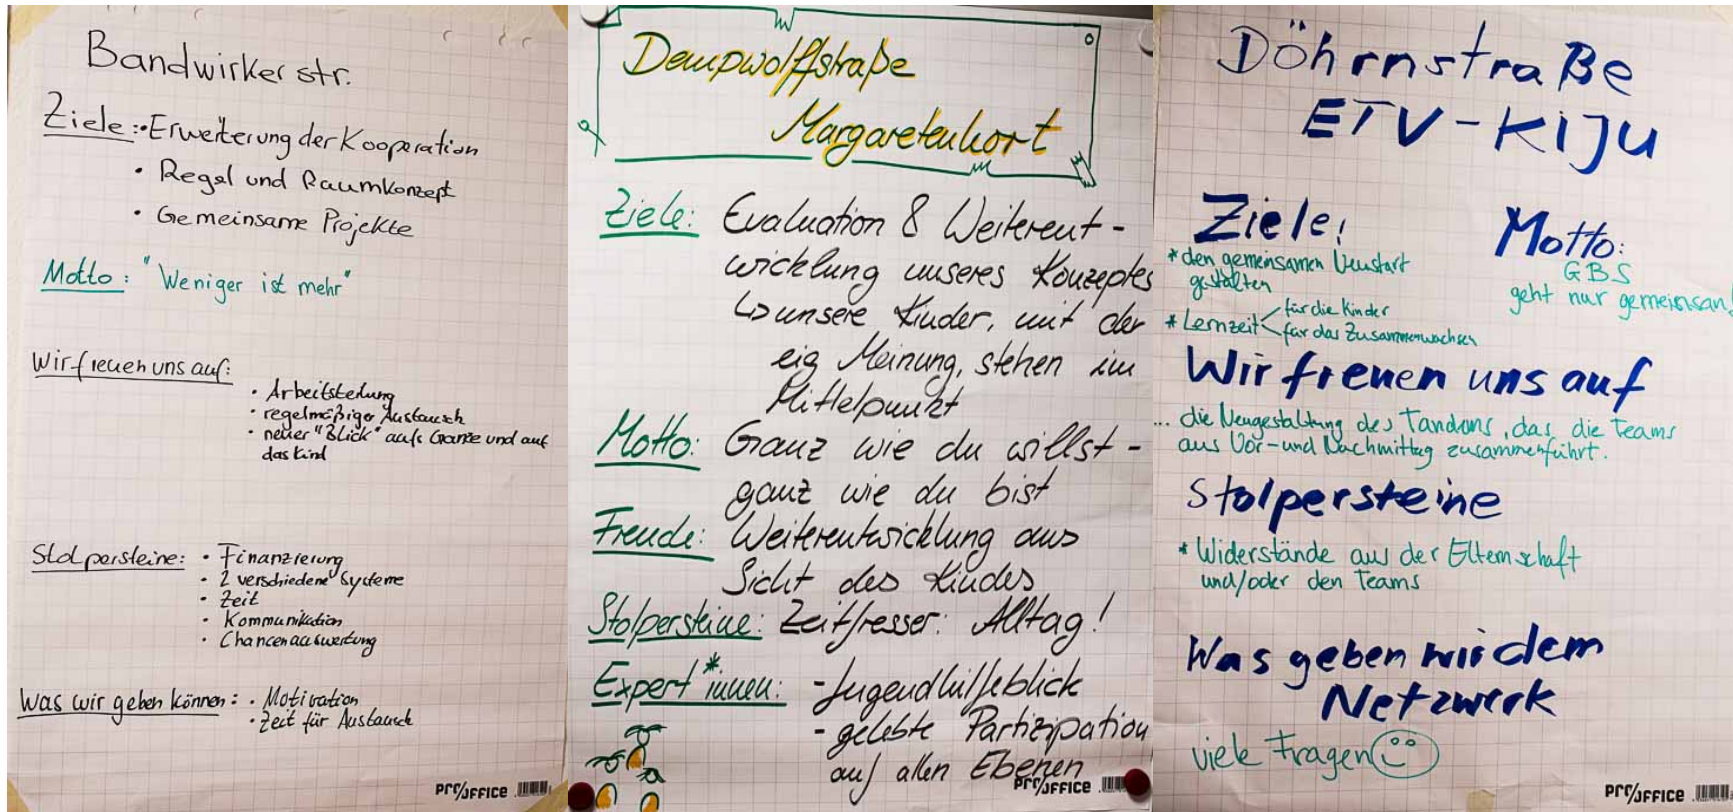 Bandwirkerstr.
Ziele: • Erweiterung der Kooperation
• Regel und Raumkonzept
• Gemeinsame Projekte
Motto: "Weniger ist mehr"
Wir freuen uns auf:
• Arbeitsteilung
• regelmäßiger Austausch
• neuer "Blick" aufs Ganze und auf
das Kind
Stolpersteine: • Finanzierung
• 2 verschiedene Systeme
• Zeit
• Kommunikation
• Chancenauswertung
Was wir geben können: • Motivation
• Zeit für Austausch
Pro/office
Dempwolffstraße
Margaretenhort
Ziele: Evaluation & Weiterent-
wicklung unseres Konzeptes
↳ unsere Kinder, mit der
eig Meinung, stehen im
Mittelpunkt
Motto: Ganz wie du willst -
ganz wie du bist
Freude: Weiterentwicklung aus
Sicht des Kindes
Stolpersteine: Zeitfresser: Alltag!
Expert*innen: - Jugendhilfeblick
- gelebte Partizipation
auf allen Ebenen
Pro/office
Döhrnstraße
ETV-KIJU
Ziele!
* den gemeinsamen Neustart
gestalten
* Lernzeit < für die Kinder
für das Zusammenwachsen
Motto:
GBS
geht nur gemeinsam!
Wir freuen uns auf
... die Neugestaltung des Tandems, das die Teams
aus Vor- und Nachmittag zusammenführt.
Stolpersteine
* Widerstände aus der Elternschaft
und/oder den Teams
Was geben wir dem
Netzwerk
viele Fragen ☺
Pro/office